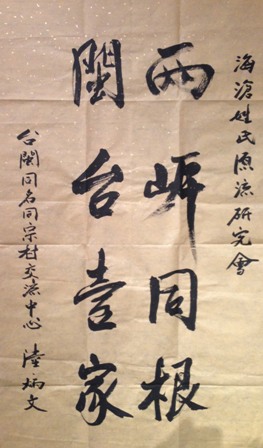 海滄姓氏源流研究會
兩岸同根
閩台壹家
台閩同名同宗村交流中心 陸炳文